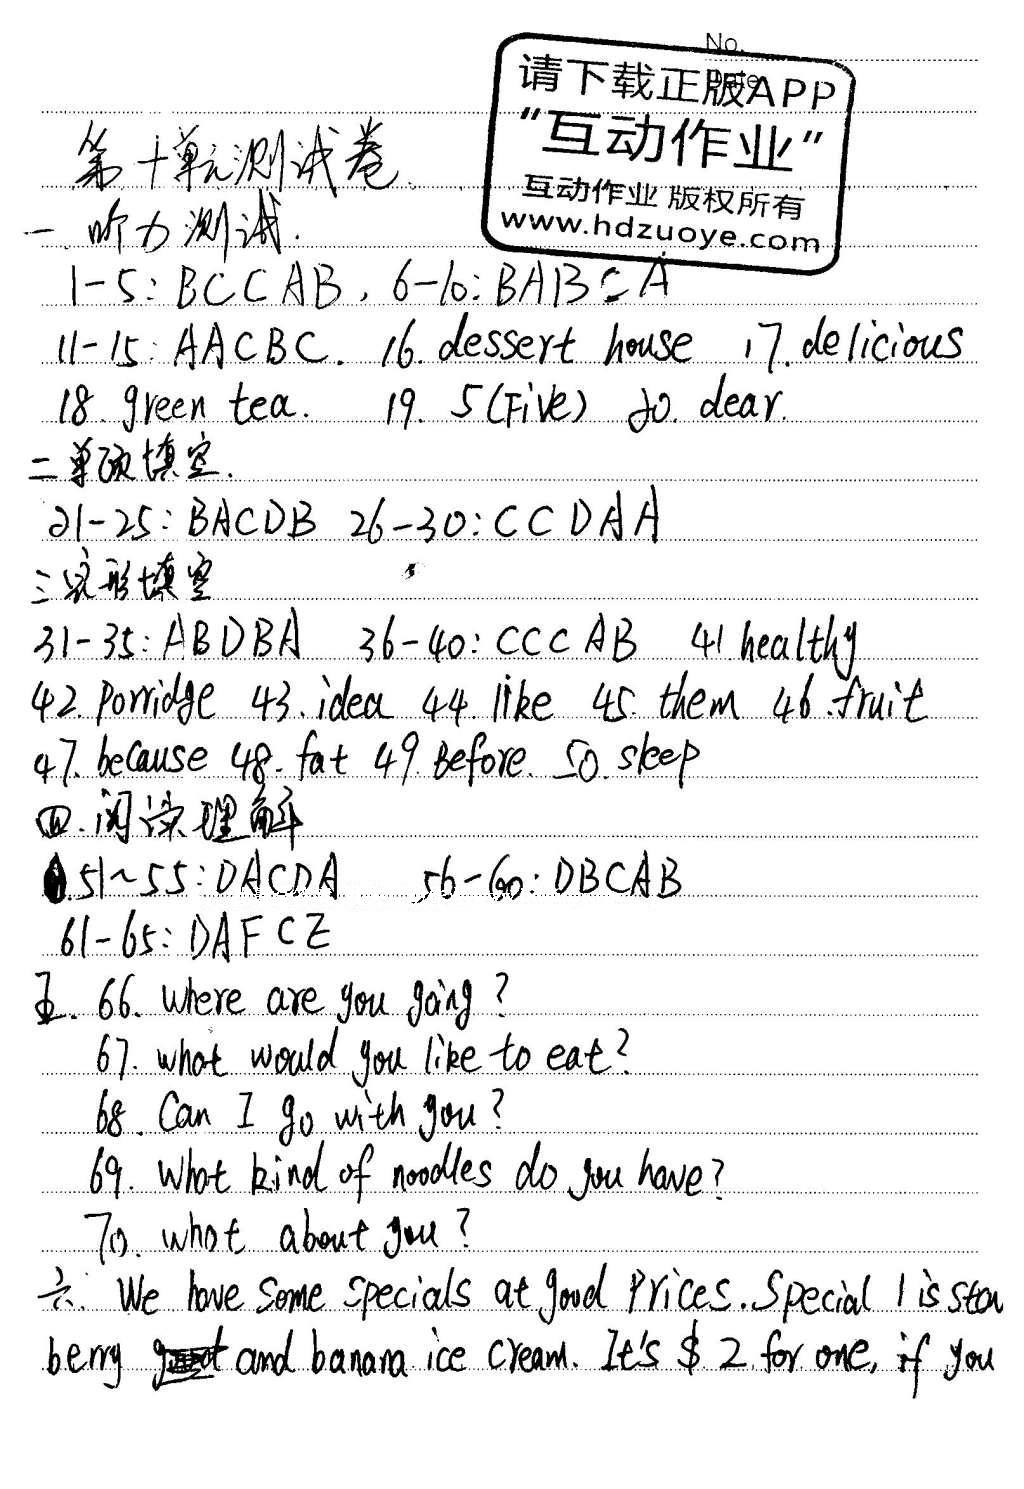 No.
Date
请下载正版APP
“互动作业”
互动作业 版权所有
www.hdzuoye.com
第十单元测试卷.
一.听力测试.
1-5: BCCAB, 6-10: BABCA
11-15: AACBC. 16. dessert house 17. delicious
18. green tea. 19. 5(Five) 20. dear.
二单项填空.
21-25: BACDB 26-30: CCDAA
三完形填空
31-35: ABDBA 36-40: CCCAB 41 healthy
42. porridge 43. idea 44. like 45. them 46. fruit
47. because 48. fat 49. Before. 50. sleep
四.阅读理解
51~55: DACDA 56-60: DBCAB
61-65: DAFCE
五. 66. Where are you going?
67. what would you like to eat?
68. Can I go with you?
69. What kind of noodles do you have?
70. what about you?
六. We have some specials at good prices. Special 1 is straw
berry and banana ice cream. It's $ 2 for one, if you